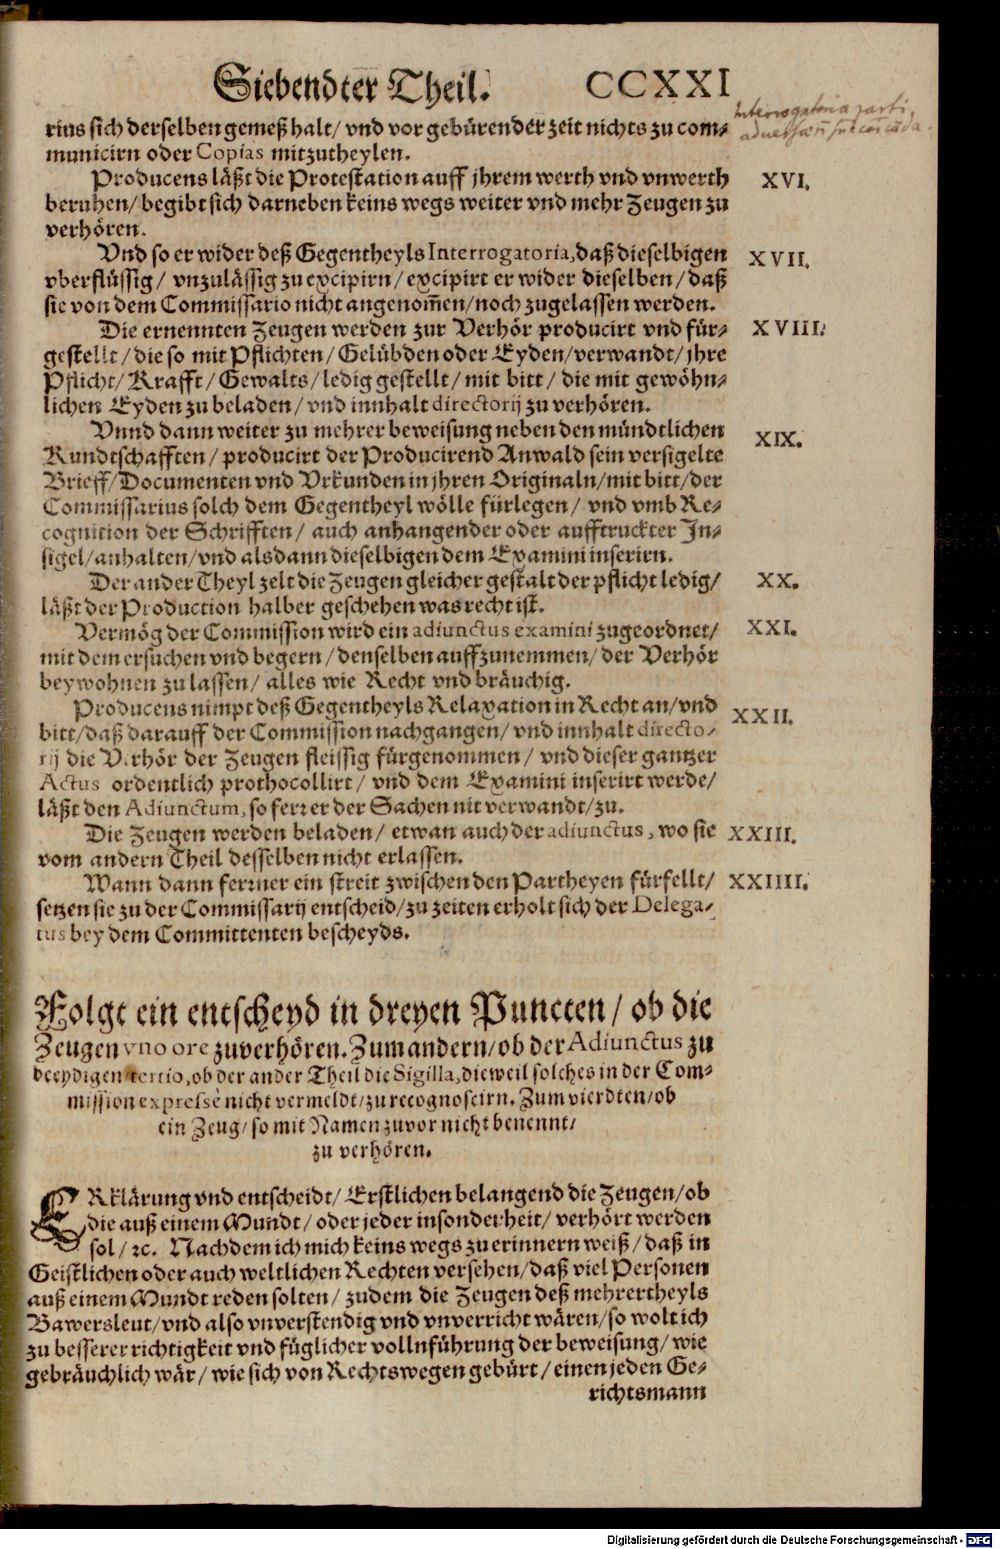 Siebendter Theil. CCXXI
rius sich derselben gemeß halt/ vnd vor gebürender zeit nichts zu com-
municirn oder Copias mitzutheylen.
Interrogatoria parti
Producens läßt die Protestation auff jhrem werth vnd vnwerth XVI.
beruhen/ begibt sich darneben keins wegs weiter vnd mehr Zeugen zu
verhören.
Vnd so er wider deß Gegentheyls Interrogatoria, daß dieselbigen XVII.
vberflüssig/ vnzulässig zu excipirn/ excipirt er wider dieselben/ daß
sie von dem Commissario nicht angenom̄en/ noch zugelassen werden.
Die ernennten Zeugen werden zur Verhör producirt vnd für- XVIII.
gestellt/ die so mit Pflichten/ Gelübden oder Eyden/ verwandt/ jhre
Pflicht/ Krafft/ Gewalts/ ledig gestellt/ mit bitt/ die mit gewöhn-
lichen Eyden zu beladen/ vnd innhalt directorij zu verhören.
Vnnd dann weiter zu mehrer beweisung neben den mündtlichen XIX.
Kundtschafften/ producirt der Producirend Anwald sein versigelte
Brieff/ Documenten vnd Vrkunden in jhren Originaln/ mit bitt/ der
Commissarius solch dem Gegentheyl wölle fürlegen/ vnd vmb Re-
cognition der Schrifften/ auch anhangender oder aufftruckter In-
sigel/ anhalten/ vnd alsdann dieselbigen dem Examini inserirn.
Der ander Theyl zelt die Zeugen gleicher gestalt der pflicht ledig/ XX.
läßt der Production halber geschehen was recht ist.
Vermög der Commission wird ein adiunctus examini zugeordnet/ XXI.
mit dem ersuchen vnd begern/ denselben auffzunemmen/ der Verhör
beywohnen zu lassen/ alles wie Recht vnd bräuchig.
Producens nimpt deß Gegentheyls Relaxation in Recht an/ vnd XXII.
bitt/ daß darauff der Commission nachgangen/ vnd innhalt directo-
rij die Verhör der Zeugen fleissig fürgenommen/ vnd dieser gantzer
Actus ordentlich prothocollirt/ vnd dem Examini inserirt werde/
läßt den Adiunctum, so ferrer der Sachen nit verwandt/ zu.
Die Zeugen werden beladen/ etwan auch der adiunctus, wo sie XXIII.
vom andern Theil desselben nicht erlassen.
Wann dann ferrner ein streit zwischen den Partheyen fürfellt/ XXIIII.
setzen sie zu der Commissarij entscheid/ zu zeiten erholt sich der Delega-
tus bey dem Committenten bescheyds.
Folgt ein entscheyd in dreyen Puncten/ ob die
Zeugen vno ore zuverhören. Zum andern/ ob der Adiunctus zu
beeydigen/ tertio, ob der ander Theil die Sigilla, dieweil solches in der Com-
mission expressè nicht vermeldt/ zu recognoscirn. Zum vierdten/ ob
ein Zeug/ so mit Namen zuvor nicht benennt/
zu verhören.
ERklärung vnd entscheidt/ Erstlichen belangend die Zeugen/ ob
die auß einem Mundt/ oder jeder insonderheit/ verhört werden
sol/ ꝛc. Nachdem ich mich keins wegs zu erinnern weiß/ daß in
Geistlichen oder auch weltlichen Rechten versehen/ daß viel Personen
auß einem Mundt reden solten/ zudem die Zeugen deß mehrertheyls
Bawersleut/ vnd also vnverstendig vnd vnverricht wären/ so wolt ich
zu besserer richtigkeit vnd füglicher vollnführung der beweisung/ wie
gebräuchlich wär/ wie sich von Rechtswegen gebürt/ einen jeden Ge-
richtsmann
Digitalisierung gefördert durch die Deutsche Forschungsgemeinschaft - DFG